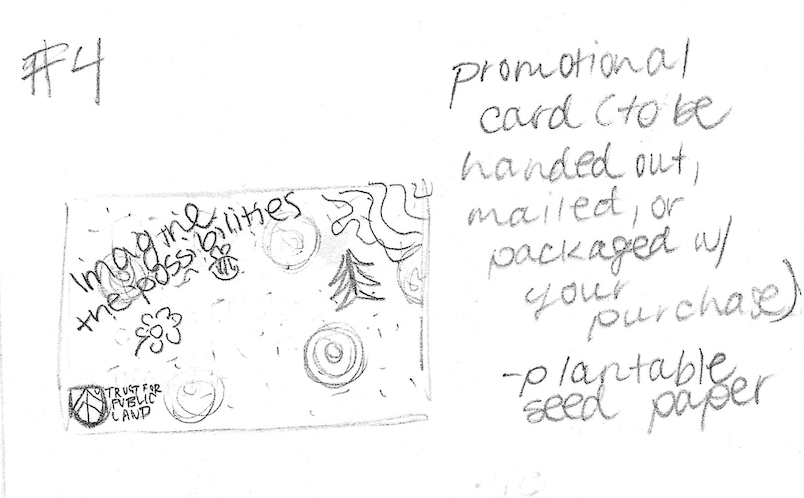 #4
promotional
card (to be
handed out,
mailed, or
packaged w/
your
purchase)
-plantable
seed paper
Imagine
the possibilities
TRUST FOR
PUBLIC
LAND